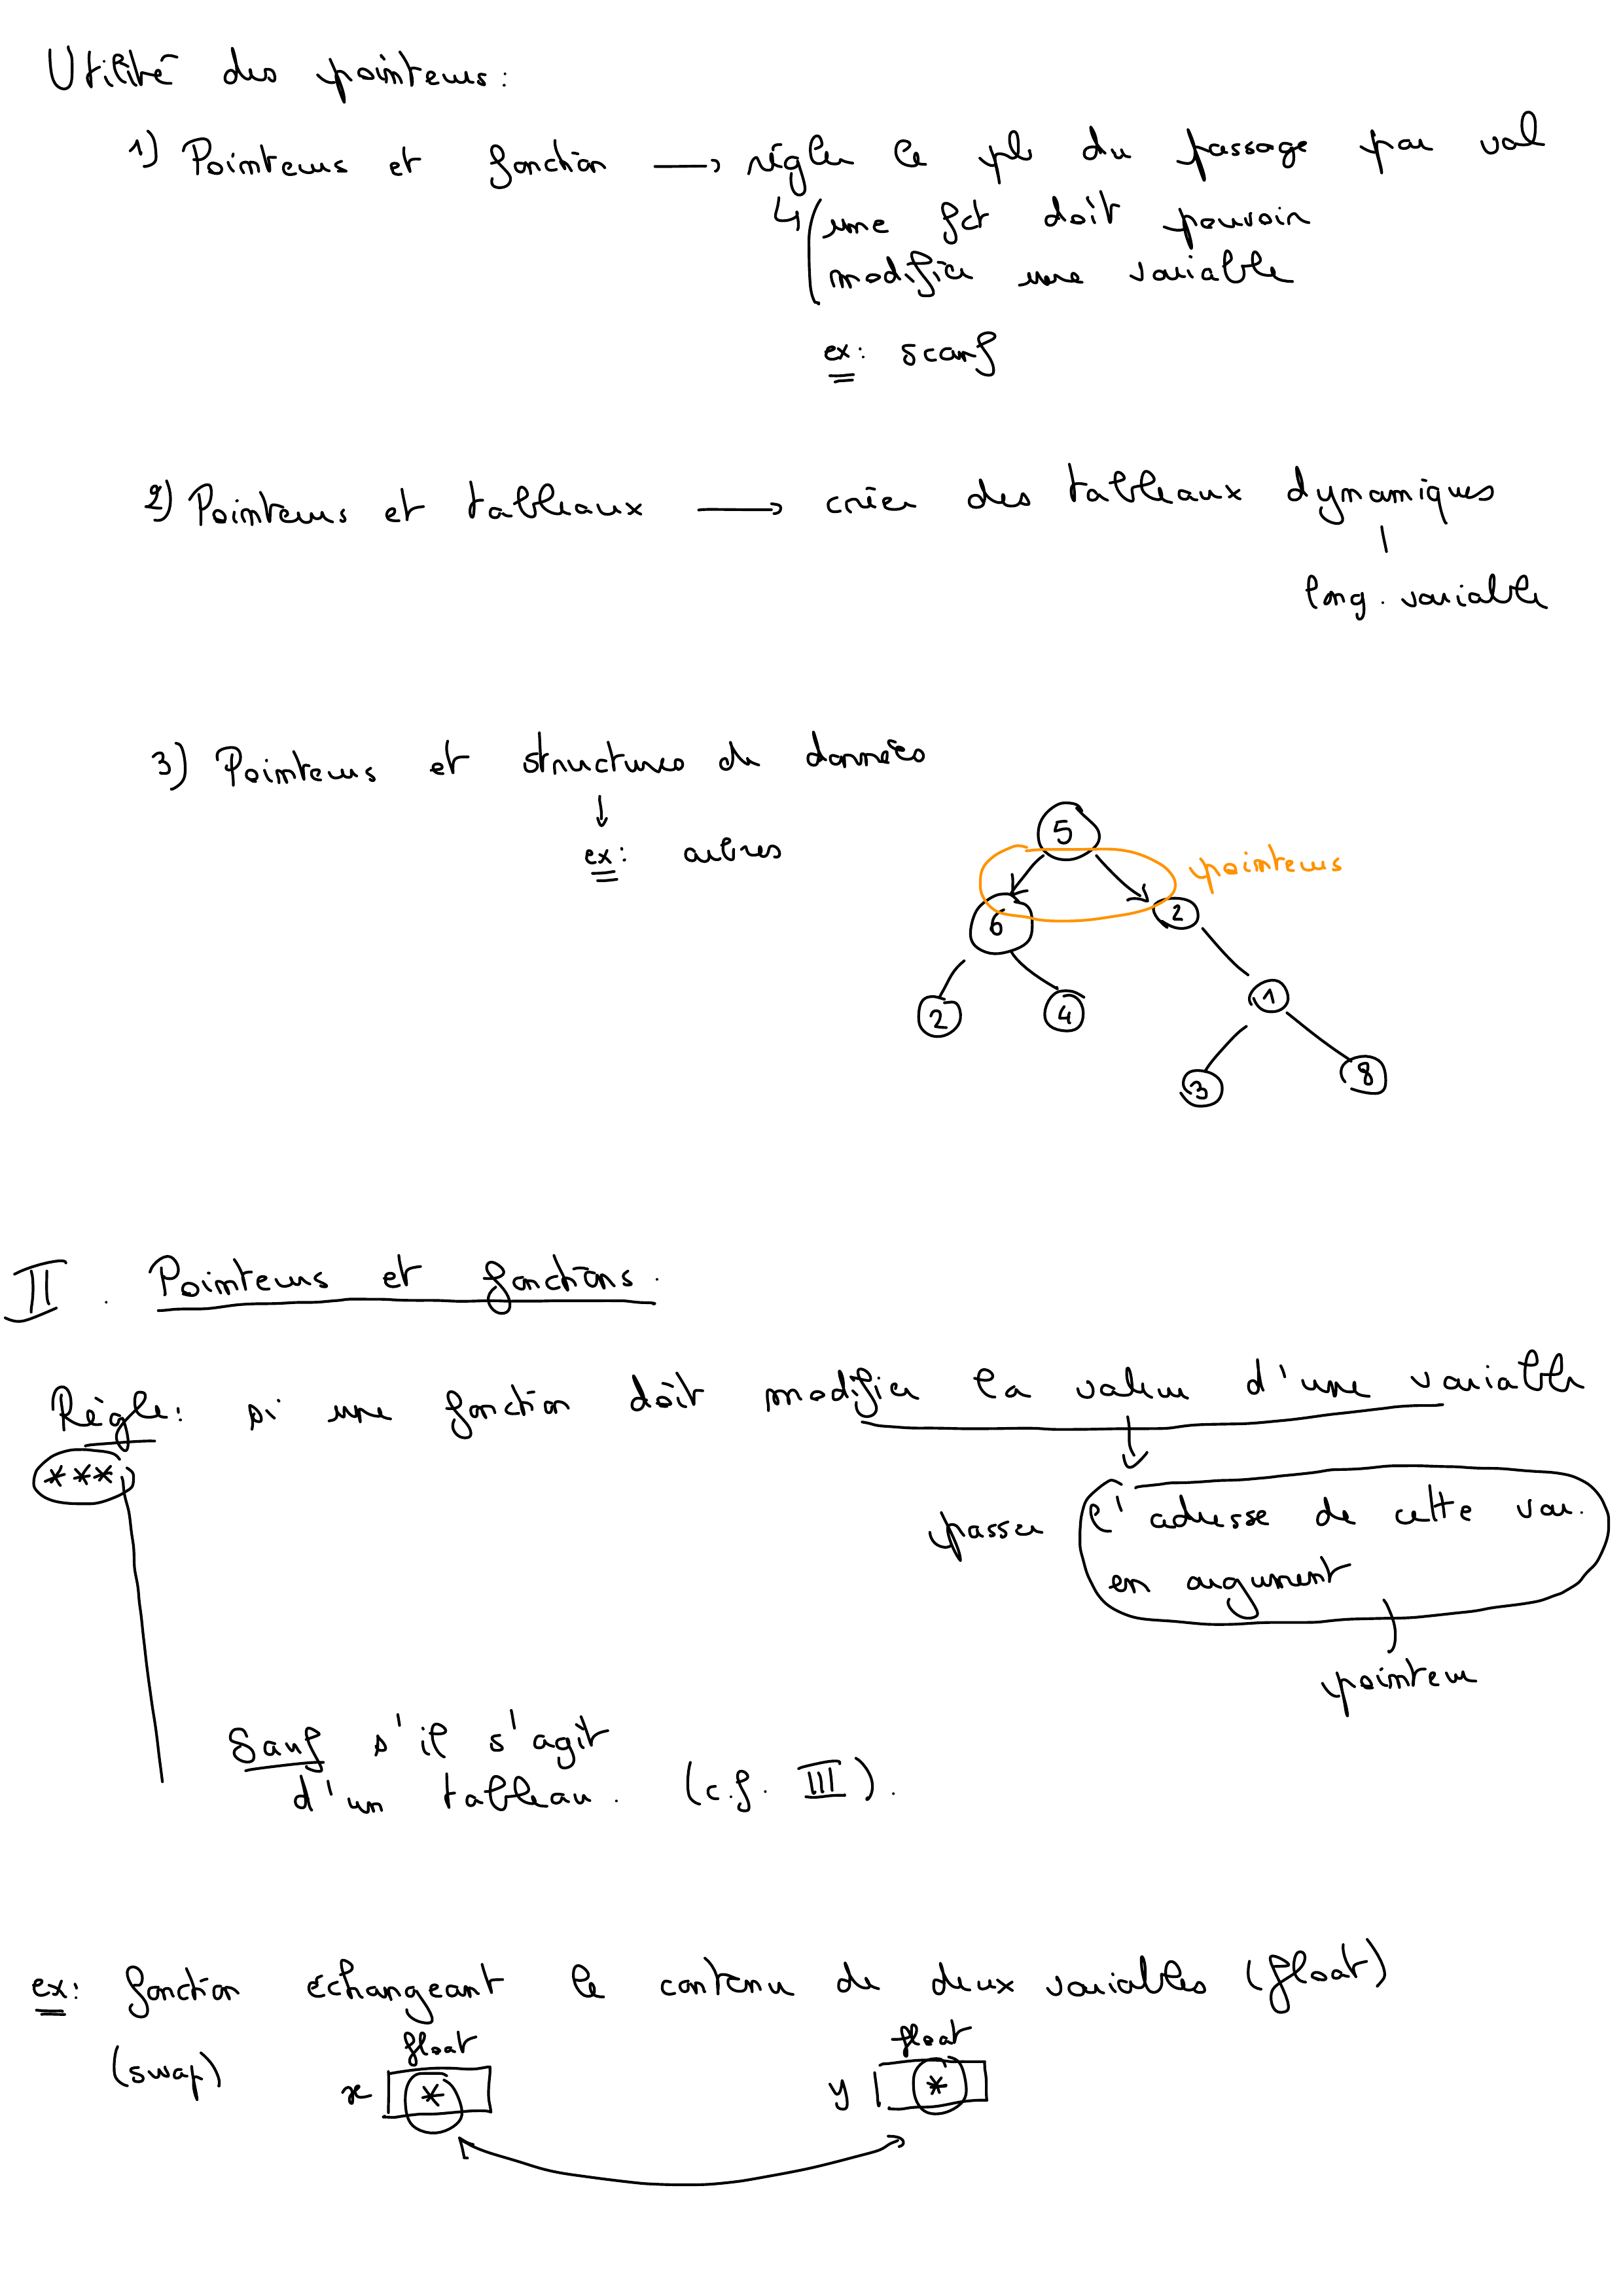 Utilité des pointeurs :
1) Pointeurs et fonction → régler le pb du passage par val
↳ une fct doit pouvoir
modifier une variable
ex : scanf
2) Pointeurs et tableaux → créer des tableaux dynamiques
long. variable
3) Pointeurs et structures de données
↓
ex : arbres
5
pointeurs
6 2
2 4 1
3 8
II. Pointeurs et fonctions.
Règle : si une fonction doit modifier la valeur d'une variable
***
passer l'adresse de cette var.
en argument
pointeur
Sauf s'il s'agit
d'un tableau. (c.f. III).
ex : fonction échangeant le contenu de deux variables (float)
(swap) float float
x * y *